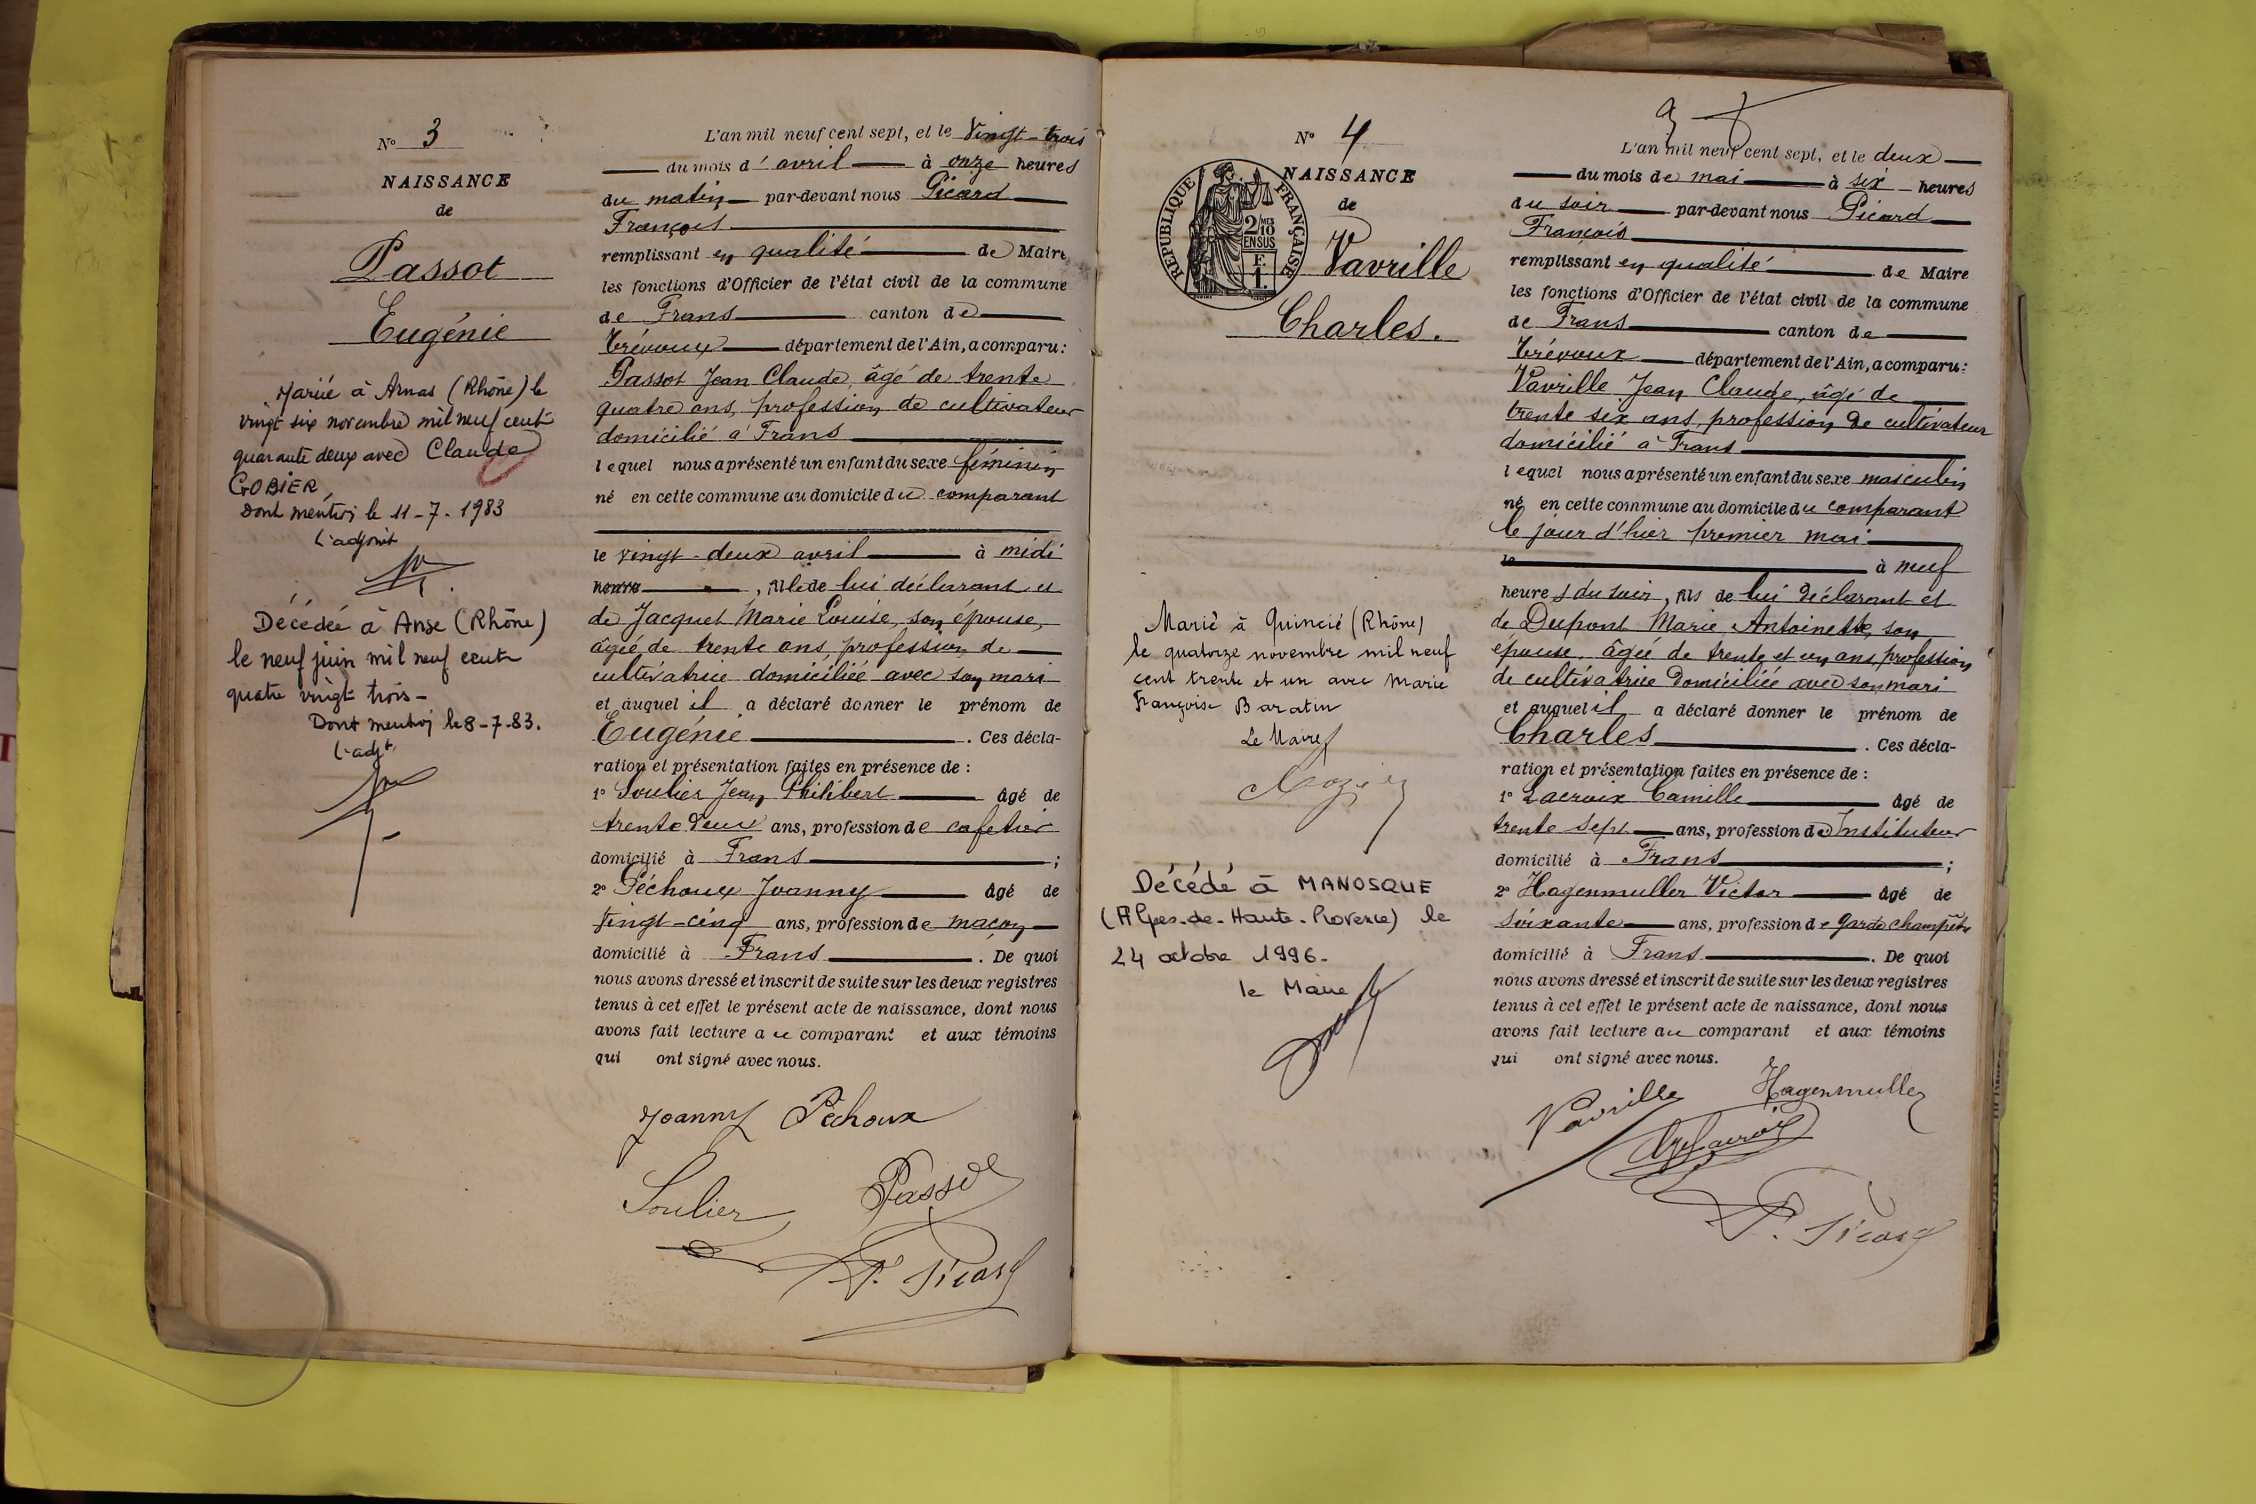 Nº 3
NAISSANCE
de
Passot
Eugénie
Mariée à Arnas (Rhône) le
vingt six novembre mil neuf cent
quarante deux avec Claude
GOBIER,
Dont mention le 11-7-1983
L'adjoint
Décédée à Anse (Rhône)
le neuf juin mil neuf cent
quatre vingt trois -
Dont mention le 8-7-83.
L'adjt
L'an mil neuf cent sept, et le vingt-trois
du mois d'avril à onze heures
du matin par-devant nous Picard
François
remplissant en qualité de Maire
les fonctions d'Officier de l'état civil de la commune
de Frans canton de
Trévoux département de l'Ain, a comparu:
Passot Jean Claude, âgé de trente
quatre ans, profession de cultivateur
domicilié à Frans
lequel nous a présenté un enfant du sexe féminin
né en cette commune au domicile du comparant
le vingt-deux avril à midi
heure, fille de lui déclarant et
de Jacquet Marie Louise, son épouse,
âgée de trente ans, profession de
cultivatrice domiciliée avec son mari
et auquel il a déclaré donner le prénom de
Eugénie. Ces décla-
ration et présentation faites en présence de :
1º Soulier Jean Philibert âgé de
trente deux ans, profession de cafetier
domicilié à Frans ;
2º Péchoux Joanny âgé de
vingt-cinq ans, profession de maçon
domicilié à Frans. De quoi
nous avons dressé et inscrit de suite sur les deux registres
tenus à cet effet le présent acte de naissance, dont nous
avons fait lecture au comparant et aux témoins
qui ont signé avec nous.
Joanny Péchoux
Soulier Passot
F. Picard
Nº 4
NAISSANCE
de
RÉPUBLIQUE FRANÇAISE
2/10 MES
EN SUS
F.
1.
Vavrille
Charles.
Marié à Quincié (Rhône)
le quatorze novembre mil neuf
cent trente et un avec Marie
Françoise Baratin
Le Maire
Décédé à MANOSQUE
(Alpes-de-Haute-Provence) le
24 octobre 1996.
le Maire
L'an mil neuf cent sept, et le deux
du mois de mai à six heures
du soir par-devant nous Picard
François
remplissant en qualité de Maire
les fonctions d'Officier de l'état civil de la commune
de Frans canton de
Trévoux département de l'Ain, a comparu:
Vavrille Jean Claude, âgé de
trente six ans, profession de cultivateur
domicilié à Frans
lequel nous a présenté un enfant du sexe masculin
né en cette commune au domicile du comparant
le jour d'hier premier mai
le à neuf
heures du soir, fils de lui déclarant et
de Dupont Marie Antoinette, son
épouse, âgée de trente et un ans, profession
de cultivatrice domiciliée avec son mari
et auquel il a déclaré donner le prénom de
Charles. Ces décla-
ration et présentation faites en présence de :
1º Lacroix Camille âgé de
trente sept ans, profession d'Instituteur
domicilié à Frans ;
2º Hagenmuller Victor âgé de
soixante ans, profession de garde champêtre
domicilié à Frans. De quoi
nous avons dressé et inscrit de suite sur les deux registres
tenus à cet effet le présent acte de naissance, dont nous
avons fait lecture au comparant et aux témoins
qui ont signé avec nous.
Vavrille Hagenmuller
Lacroix
F. Picard